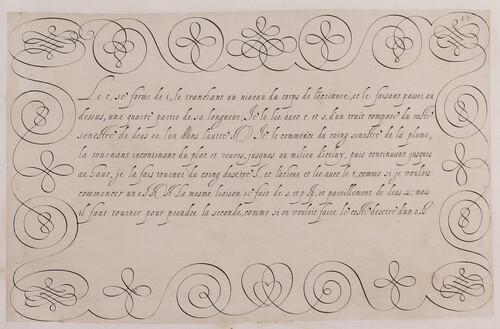 Le t, se forme de i, le tranchant au niueau du corps de l'escriture, et le faisant passer au
dessus, une quarte partie de sa longueur. Je le lie auec c et s, d'un trait composé du costé
senestre de deus oo, l'un dans l'autre O. Je le commence du coing senestre de la plume,
la tournant incontinant du plat et reuers, jusques au milieu d'iceluy, puis continuant jusques
au haut, je la fais tourner du coing dextre, et la tiens et lie auec le t, comme si je voulois
commencer un. La mesme liaison se fait de s, et p, et pareillement de deus ss; mais
il faut tourner pour prendre la seconde, comme si on vouloit faire le costé dextre d'un o.